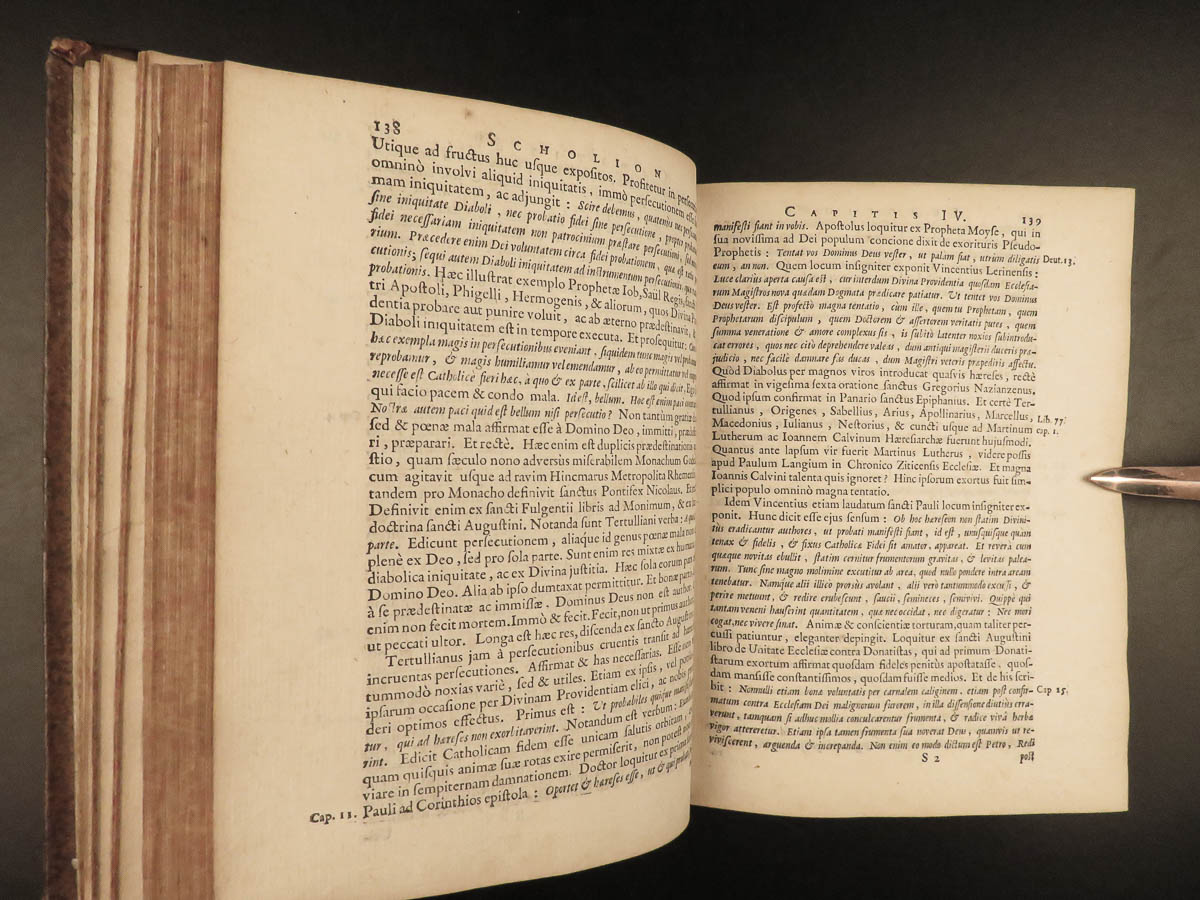 138
SCHOLION
Utique ad fructus huc usque expositos. Profitetur in
omninò involvi aliquid iniquitatis, immò persecutionem esse
mam iniquitatem, ac adjungit: Scire debemus, quatenus nec
sine iniquitate Diaboli, nec probatio fidei sine persecutione, propter
fidei necessariam iniquitatem non patrocinium præstare persecutioni, sed
rium. Præcedere enim Dei voluntatem circa fidei probationem, quæ est
cutionis; sequi autem Diaboli iniquitatem ad instrumentum persecutionis, quæ
probationis. Hæc illustrat exemplo Prophetæ Iob, Saül Regis,
tri Apostoli, Phigelli, Hermogenis, & aliorum, quos Divina
dentia probare aut punire voluit, ac ab æterno prædestinavit,
Diaboli iniquitatem est in tempore executa. Et prosequitur:
hæc exempla magis in persecutionibus eveniant, siquidem tunc magis vel
reprobamur, & magis humiliamur vel emendamur, ab eo permittatur vel
necesse est Catholicè fieri hæc, à quo & ex parte, scilicet ab illo qui dicit,
qui facio pacem & condo mala. Id est, bellum. Hoc est enim paci
Nostræ autem paci quid est bellum nisi persecutio? Non tantùm gratiæ
sed & pœnæ mala affirmat esse à Domino Deo, immitti,
ri, præparari. Et rectè. Hæc enim est duplicis prædestinationis
stio, quam sæculo nono adversùs miserabilem Monachum
cum agitavit usque ad ravim Hincmarus Metropolita
tandem pro Monacho definivit sanctus Pontifex Nicolaus.
Definivit enim ex sancti Fulgentii libris ad Monimum, & ex
doctrina sancti Augustini. Notanda sunt Tertulliani verba:
parte. Edicunt persecutionem, aliaque id genus pœnæ mala non
plenè ex Deo, sed pro sola parte. Sunt enim res mixtæ ex
diabolica iniquitate, ac ex Divina justitia. Hæc sola eorum
Domino Deo. Alia ab ipso dumtaxat permittitur. Et bonæ
à se prædestinatæ ac immissæ. Dominus Deus non est
enim non fecit mortem. Immò & fecit. Fecit, non ut primus
ut peccati ultor. Longa est hæc res, discenda ex sancto
Tertullianus jam à persecutionibus cruentis transit ad
incruentas persecutiones. Affirmat & has necessarias. Esse
tummodò noxias variè, sed & utiles. Etiam ex ipsis, vel
ipsarum occasione per Divinam Providentiam elici, ac
deri optimos effectus. Primus est: Ut probabiles quique
tur, qui ad hæreses non exorbitaverint. Notandum est verbum:
rint. Edicit Catholicam fidem esse unicam salutis orbitam,
quam quisquis animæ suæ rotas exire permiserit, non potest
viare in sempiternam damnationem. Doctor loquitur ex
Cap. 11. Pauli ad Corinthios epistola: Oportet & hæreses esse, ut & qui
CAPITIS IV. 139
manifesti fiant in vobis. Apostolus loquitur ex Propheta Moyse, qui in
sua novissima ad Dei populum concione dixit de exorituris Pseudo-
Prophetis: Tentat vos Dominus Deus vester, ut palam fiat, utrum diligatis Deut. 13.
eum, an non. Quem locum insigniter exponit Vincentius Lerinensis:
Luce clariùs aperta causa est, cur interdum Divina Providentia quosdam Ecclesia-
rum Magistros nova quædam Dogmata prædicare patiatur. Ut tentet vos Dominus
Deus vester. Est profectò magna tentatio, cùm ille, quem tu Prophetam, quem
Prophetarum discipulum, quem Doctorem & assertorem veritatis putes, quem
summa veneratione & amore complexus sis, is subitò latenter noxios subintrodu-
cat errores, quos nec citò deprehendere valeas, dum antiqui magisterii duceris præ-
judicio, nec facilè damnare fas ducas, dum Magistri veteris præpediris affectu.
Quòd Diabolus per magnos viros introducat quasvis hæreses, rectè
affirmat in vigesima sexta oratione sanctus Gregorius Nazianzenus.
Quod ipsum confirmat in Panario sanctus Epiphanius. Et certè Ter-
tullianus, Origenes, Sabellius, Arius, Apollinarius, Marcellus, Lib. 77.
Macedonius, Iulianus, Nestorius, & cuncti usque ad Martinum cap. 1.
Lutherum ac Ioannem Calvinum Hæresiarchæ fuerunt hujusmodi.
Quantus ante lapsum vir fuerit Martinus Lutherus, videre possis
apud Paulum Langium in Chronico Ziticensis Ecclesiæ. Et magna
Ioannis Calvini talenta quis ignoret? Hinc ipsorum exortus fuit sim-
plici populo omninò magna tentatio.
Idem Vincentius etiam laudatum sancti Pauli locum insigniter ex-
ponit. Hunc dicit esse ejus sensum: Ob hoc hæreseon non statim Divini-
tùs eradicantur authores, ut probati manifesti fiant, id est, unusquisque quàm
tenax & fidelis, & fixus Catholicæ Fidei sit amator, appareat. Et reverà cum
quæque novitas ebullit, statim cernitur frumentorum gravitas, & levitas palea-
rum. Tunc sine magno molimine excutitur ab area, quod nullo pondere intra aream
tenebatur. Namque alii illicò prorsùs avolant, alii verò tantummodo excussi, &
perire metuunt, & redire erubescunt, saucii, semineces, semivivi. Quippe qui
tantam veneni hauserint quantitatem, quæ nec occidat, nec digeratur: Nec mori
cogat, nec vivere sinat. Animæ & conscientiæ torturam, quam taliter per-
cussi patiuntur, eleganter depingit. Loquitur ex sancti Augustini
libro de Unitate Ecclesiæ contra Donatistas, qui ad primum Donati-
starum exortum affirmat quosdam fideles penitùs apostatasse, quos-
dam mansisse constantissimos, quosdam fuisse medios. Et de his scri-
bit: Nonnulli etiam bonæ voluntatis per carnalem caliginem, etiam post confir- Cap 25.
matum contra Ecclesiam Dei malignorum furorem, in illa dissensione diutiùs erra-
verunt, tamquam si adhuc mollia conculcarentur frumenta, & radice viva herbæ
vigor attereretur. Etiam ipsa tamen frumenta sua noverat Deus, quamvis ut re-
viviscerent, arguenda & increpanda. Non enim eo modo dictum est Petro, Redi
S 2 post